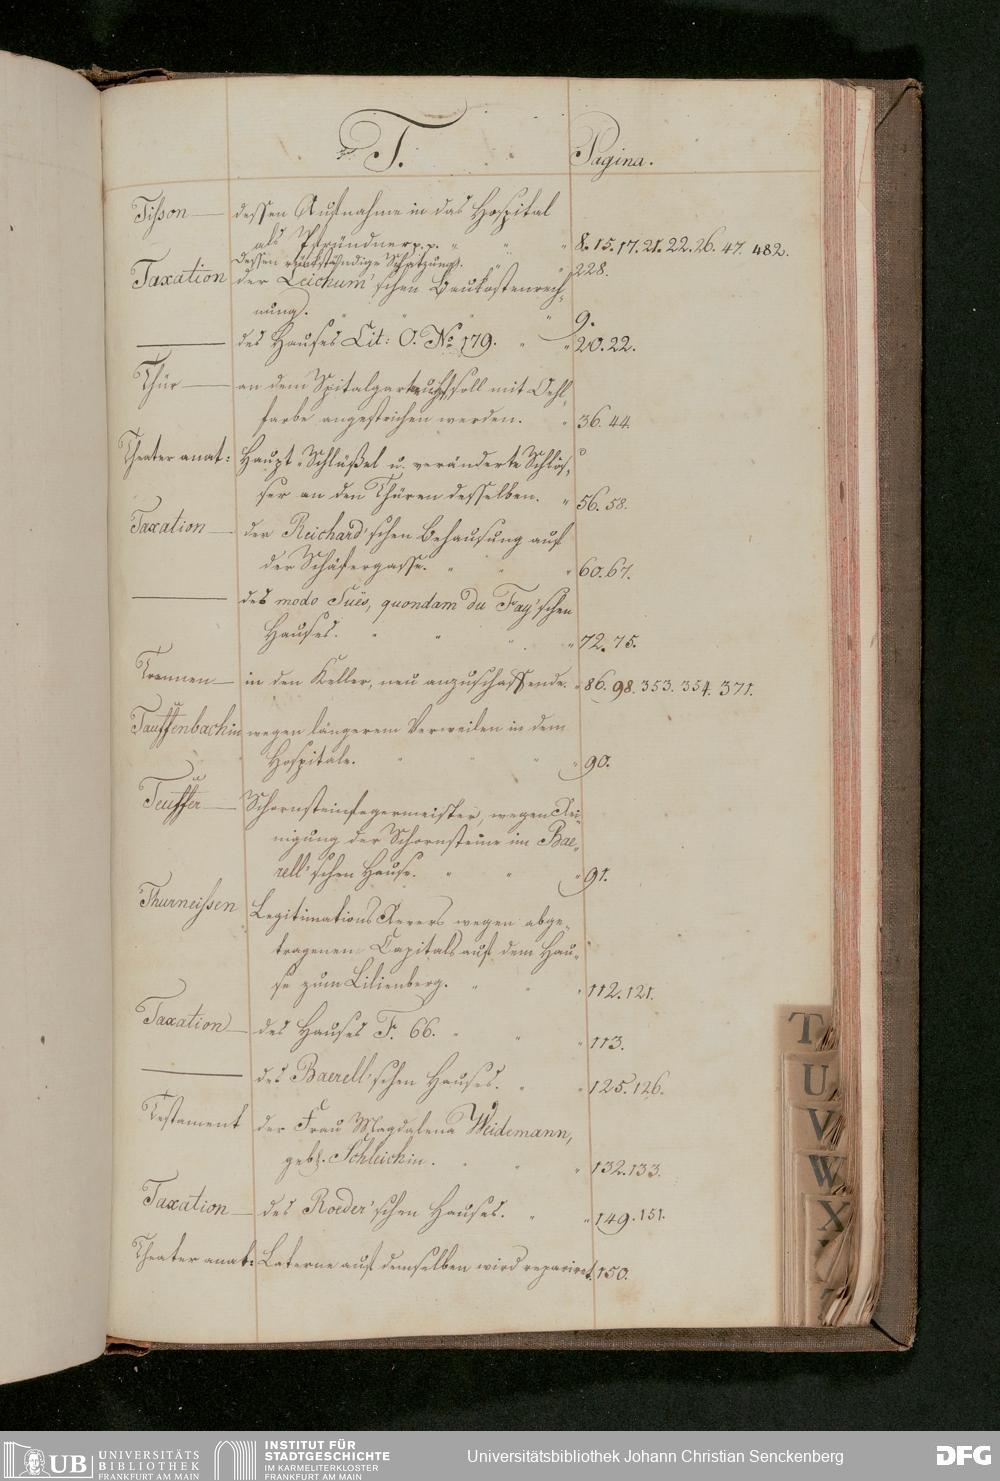 T. Pagina.
Tisson — dessen Aufnahme in das Hospital
als Pfründner p. p. " " " 8. 15. 17. 21. 22. 26. 47. 482.
Dessen rückständige Schatzung. " " 228.
Taxation der Leichum'schen Baukostenrech-
nung. " " " 9.
— des Hauses Lit: O. No 179. " " 20. 22.
Thür — an dem Spitalgarten soll mit Oehl-
farbe angestrichen werden. " 36. 44.
Theater anat: Haupt-Schlüßel u. veränderte Schlös-
ser an den Thüren desselben. " 56. 58.
Taxation — der Reichard'schen Behausung auf
der Schäfergasse. " " " 60. 67.
— des modo Süès, quondam du Fay'schen
Hauses. " " " " 72. 75.
Trennen — in den Keller, neu anzuschaffende. " 86. 98. 353. 354. 371.
Tauffenbachin wegen längerem Verweilen in dem
Hospitale. " " " " 90.
Teuffer — Schornsteinfegermeister, wegen Rei-
nigung der Schornsteine im Bae-
rell'schen Hause. " " " 91.
Thurneissen Legitimations Revers wegen abge-
tragenen Capitals auf dem Hau-
se zum Lilienberg. " " " 112. 121.
Taxation — des Hauses F. 66. " " " 113.
— des Baerell'schen Hauses. " " 125. 126.
Testament der Frau Magdalena Weidemann,
geb. Schleichin. " " " 132. 133.
Taxation — des Roeder'schen Hauses. " " 149. 151.
Theater anat: Laterne auf demselben wird reparirt. 150.
T
U
V
W
X
UB UNIVERSITÄTS
BIBLIOTHEK
FRANKFURT AM MAIN
INSTITUT FÜR
STADTGESCHICHTE
IM KARMELITERKLOSTER
FRANKFURT AM MAIN
Universitätsbibliothek Johann Christian Senckenberg
DFG